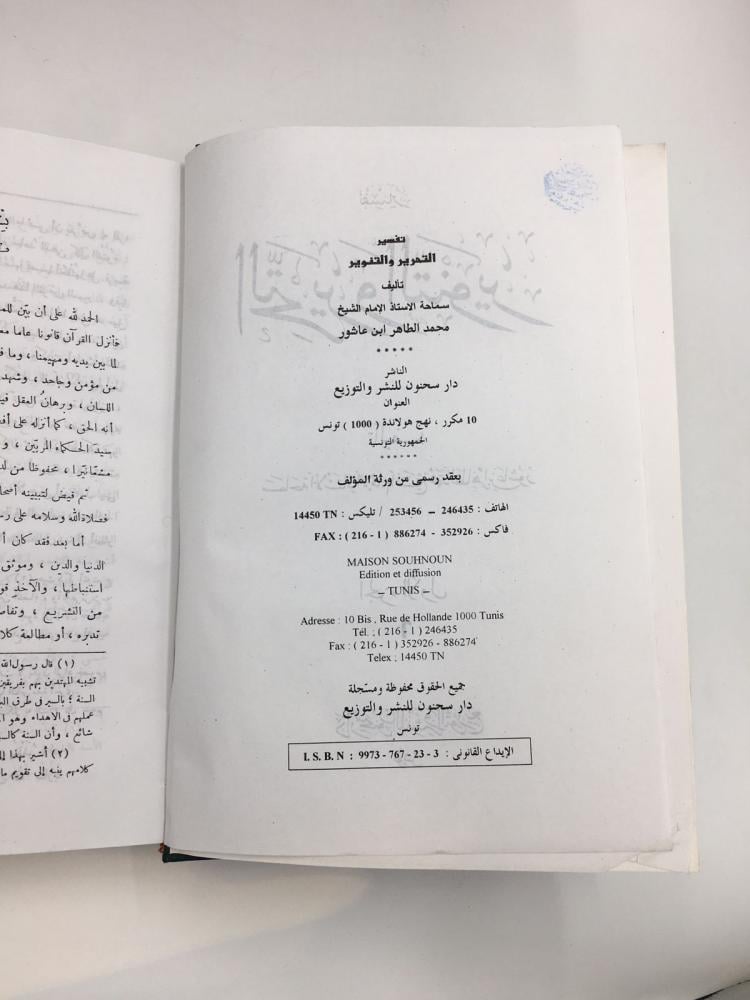 تفسير
التحرير والتنوير
تأليف
سماحة الاستاذ الإمام الشيخ
محمد الطاهر ابن عاشور
*****
الناشر
دار سحنون للنشر والتوزيع
العنوان
10 مكرر ، نهج هولاندة ( 1000 ) تونس
الجمهورية التونسية
******
بعقد رسمى من ورثة المؤلف
الهاتف : 246435 – 253456 / تليكس : 14450 TN
فاكس : 352926 - 886274 ( 1 - 216 ) : FAX
MAISON SOUHNOUN
Edition et diffusion
– TUNIS –
Adresse : 10 Bis , Rue de Hollande 1000 Tunis
Tél. : ( 216 - 1 ) 246435
Fax : ( 216 - 1 ) 352926 - 886274
Telex : 14450 TN
جميع الحقوق محفوظة ومسجلة
دار سحنون للنشر والتوزيع
تونس
الإيداع القانونى : I. S. B. N : 9973 - 767 - 23 - 3
الحمد لله على أن بيّن للم
فأنزل القرآن قانونا عاما مع
لما بين يديه ومهيمنا ، وما ف
من مؤمن وجاحد ، وشهد
اللسان ، وبرهانُ العقل فيـ
أنه الحق ، كما أنزله على أفض
سيدَ الحكماء المربّين ، و
محفوظا من لد
ثم قيض لتبيينه أصحا
فصلاة الله وسلامه على رس
أما بعد فقد كان أ
الدنيا والدين ، وموثق
استنباطها ، والآخذِ قو
من التشريع ، وتفاص
تدبره ، أو مطالعة كلا
(١) قال رسول الله
تشبيه المهتدين بهم بفريقين
السنة ؛ بالسير فى طرق الب
عملهم فى الاهداء وهو ال
شائع ، وأن السنة كالسـ
(٢) أشير بهذا إلى
كلامهم ينبه إلى تقويم ما